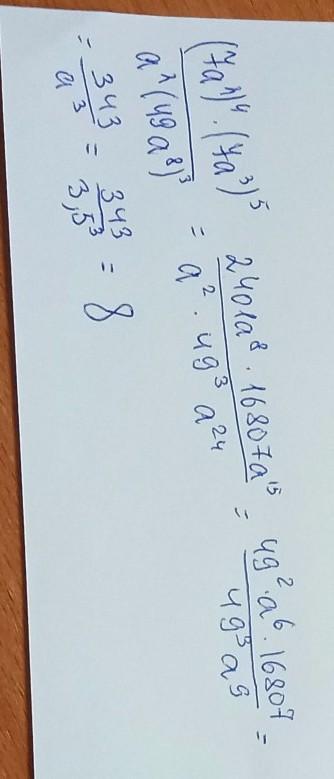 (7a²)⁴ · (7a³)⁵ / a²(49a⁸)³ = 2401a⁸ · 16807a¹⁵ / a² · 49³ a²⁴ = 49² · a⁶ · 16807 / 49³ a⁹ =
= 343 / a³ = 343 / 3,5³ = 8